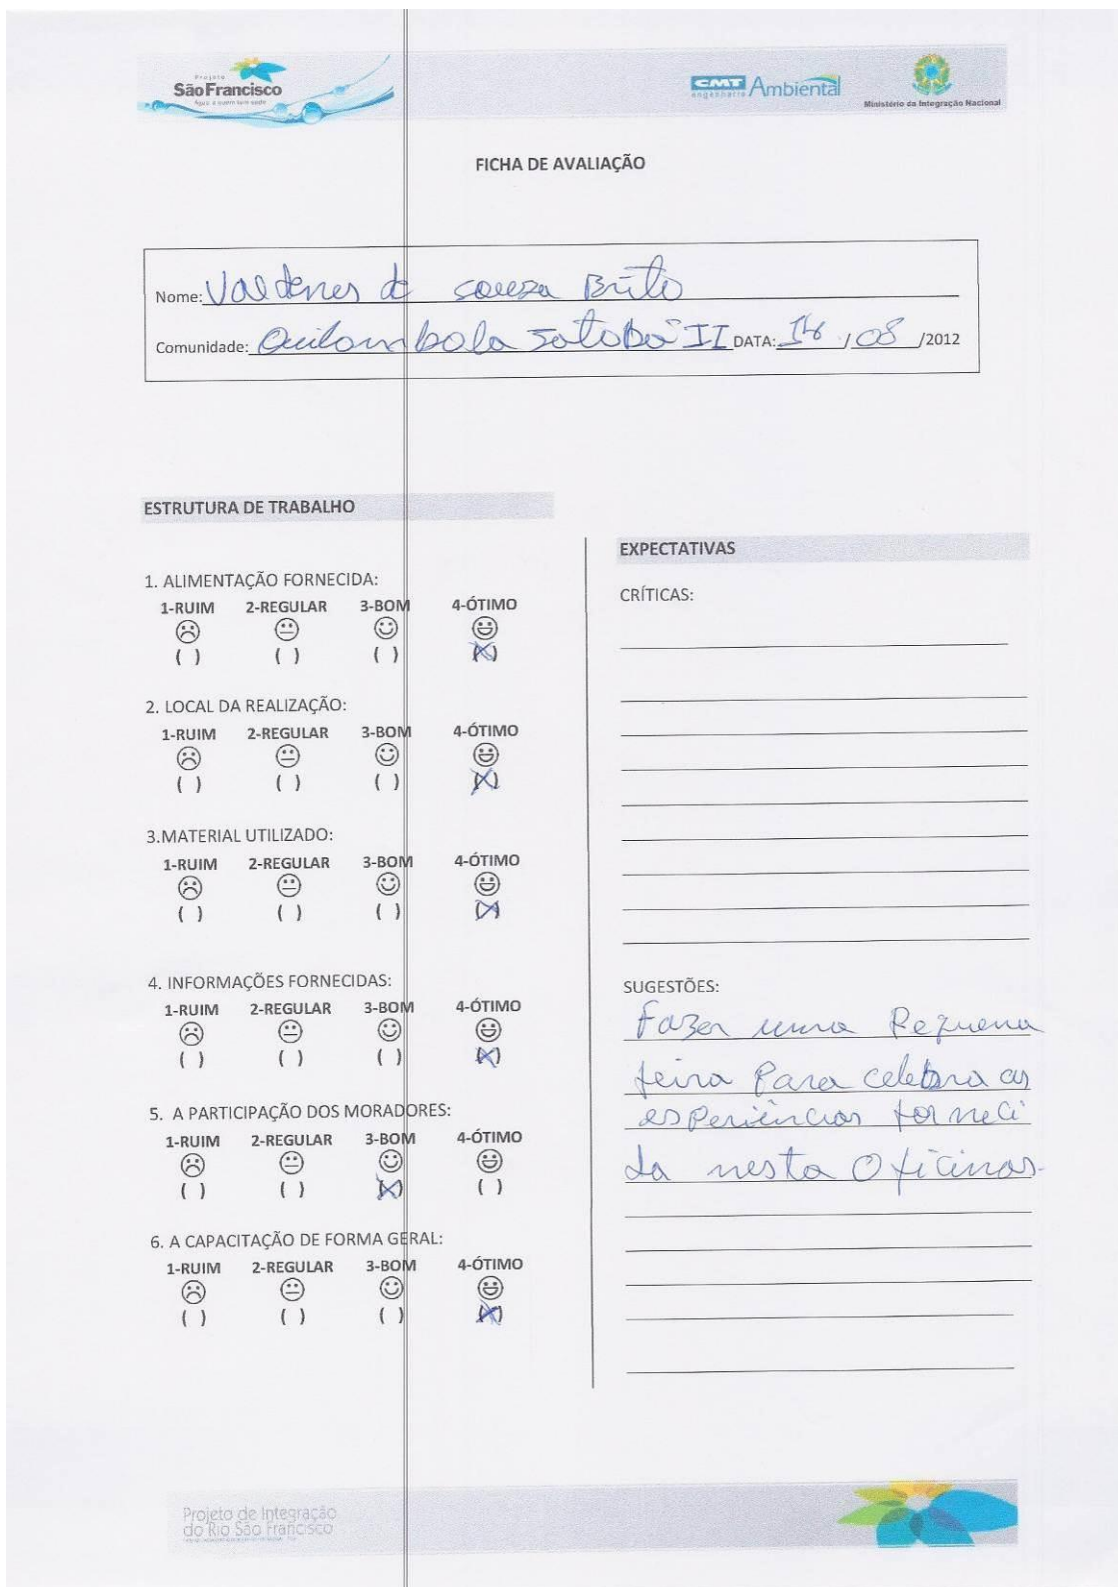 Projeto
São Francisco
Água a quem tem sede
CMT
engenharia
Ambiental
Ministério da Integração Nacional
FICHA DE AVALIAÇÃO
Nome: de souza Brito
Comunidade: Quilombola Jatobá II DATA: /08/2012
ESTRUTURA DE TRABALHO
1. ALIMENTAÇÃO FORNECIDA:
1-RUIM 2-REGULAR 3-BOM 4-ÓTIMO
( ) ( ) ( ) (X)
2. LOCAL DA REALIZAÇÃO:
1-RUIM 2-REGULAR 3-BOM 4-ÓTIMO
( ) ( ) ( ) (X)
3.MATERIAL UTILIZADO:
1-RUIM 2-REGULAR 3-BOM 4-ÓTIMO
( ) ( ) ( ) (X)
4. INFORMAÇÕES FORNECIDAS:
1-RUIM 2-REGULAR 3-BOM 4-ÓTIMO
( ) ( ) ( ) (X)
5. A PARTICIPAÇÃO DOS MORADORES:
1-RUIM 2-REGULAR 3-BOM 4-ÓTIMO
( ) ( ) (X) ( )
6. A CAPACITAÇÃO DE FORMA GERAL:
1-RUIM 2-REGULAR 3-BOM 4-ÓTIMO
( ) ( ) ( ) (X)
EXPECTATIVAS
CRÍTICAS:
SUGESTÕES:
Fazer uma Pequena
feira Para celebra as
esperiências forneci
da nesta Oficinas.
Projeto de Integração
do Rio São Francisco